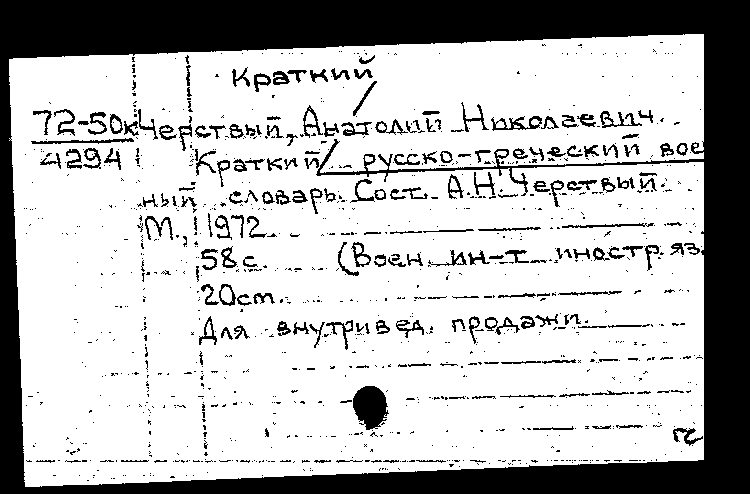 Краткий
72-50к Черствый, Анатолий Николаевич.
4294 Краткий/ русско-греческий воен
ный словарь. Сост. А.Н.Черствый.
М., 1972.
58с. (Воен. ин-т иностр. яз.
20см.
Для внутривед. продажи.